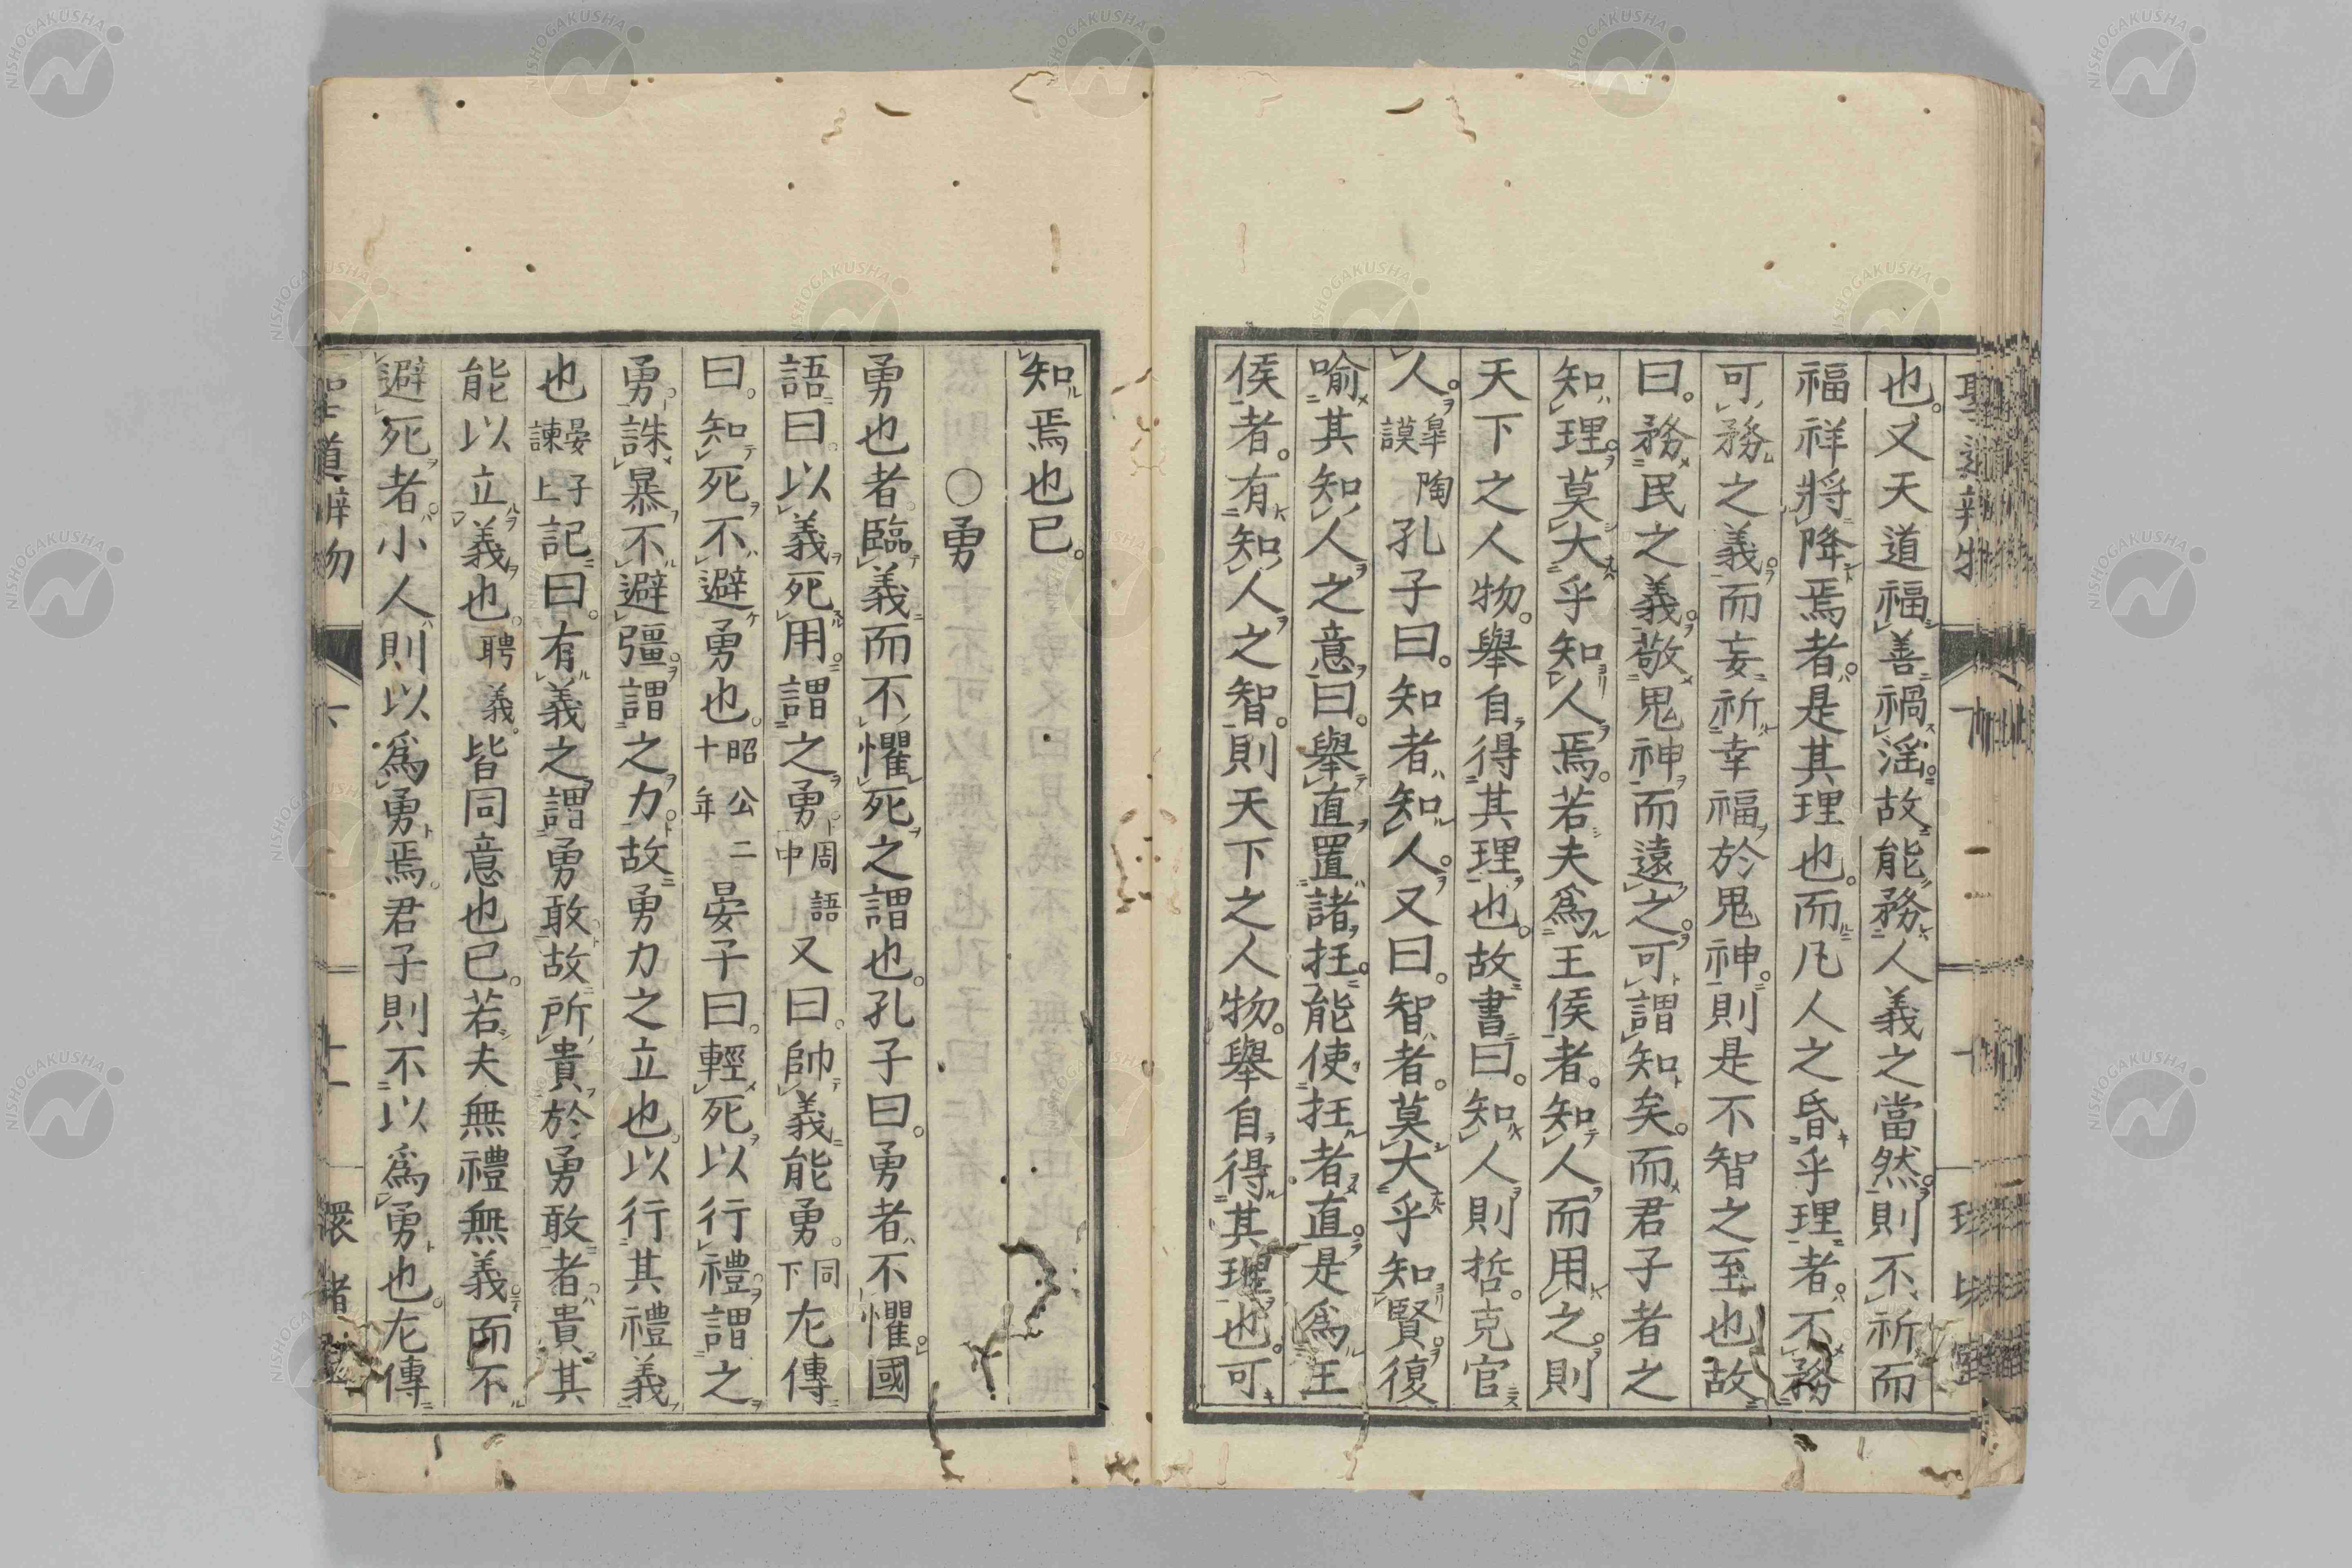 也。又天道福善禍淫。故能務人義之當然。則不祈而
福祥將降焉者。是其理也。而凡人之昏乎理者。不務
可務之義。而妄祈幸福於鬼神。則是不智之至也故
曰。務民之義。敬鬼神而遠之。可謂知矣。而君子者之
知理。莫大乎知人焉。若夫爲王侯者。知人而用之。則
天下之人物。舉自得其理也。故書曰。知人則哲。克官
人。皐陶謨孔子曰。知者知人。又曰。智者。莫大乎知賢。復
喻其知人之意曰。舉直置諸抂。能使抂者直。是爲王
侯者。有知人之智。則天下之人物。舉自得其理也。可
知焉也已。
○勇
勇也者。臨義而不懼死之謂也。孔子曰。勇者不懼。國
語曰。以義死用。謂之勇周語中又曰。帥義能勇。同下左傳
曰。知死不避勇也。昭公二十年晏子曰。輕死以行禮。謂之
勇。誅暴不避彊。謂之力。故勇力之立也。以行其禮義
也晏子諫上記曰。有義之謂勇敢。故所貴於勇敢者。貴其
能以立義也。聘義。皆同意也已。若夫無禮無義。而不
避死者。小人則以爲勇焉。君子則不以爲勇也。左傳
聖道辨物
下
十一
環堵室